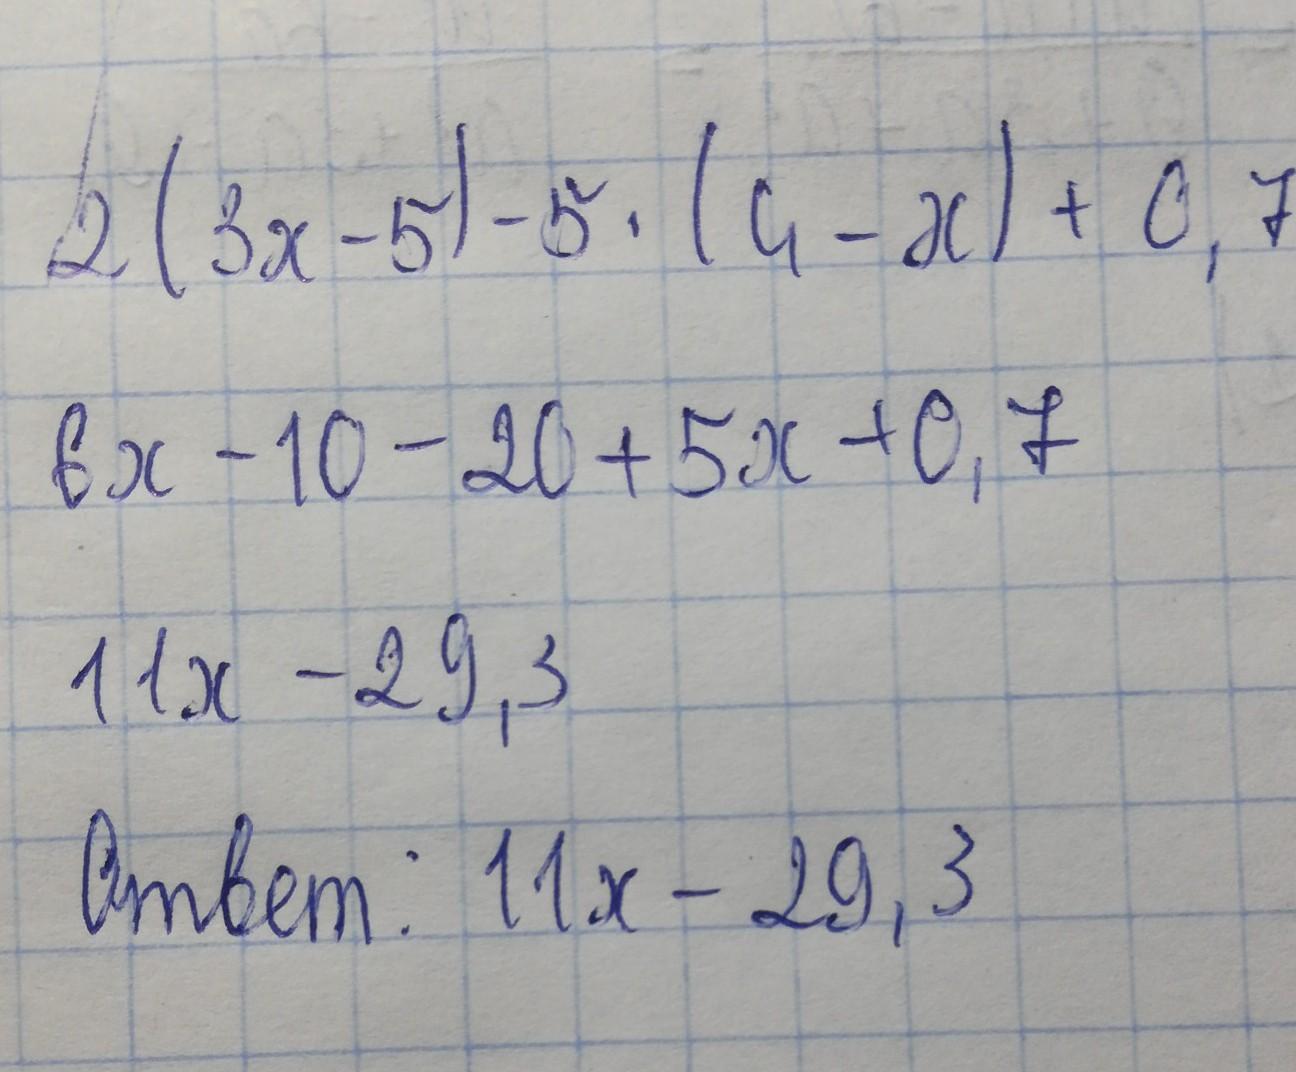 2(3x-5)-5·(4-x)+0,7
6x-10-20+5x+0,7
11x-29,3
Ответ: 11x-29,3